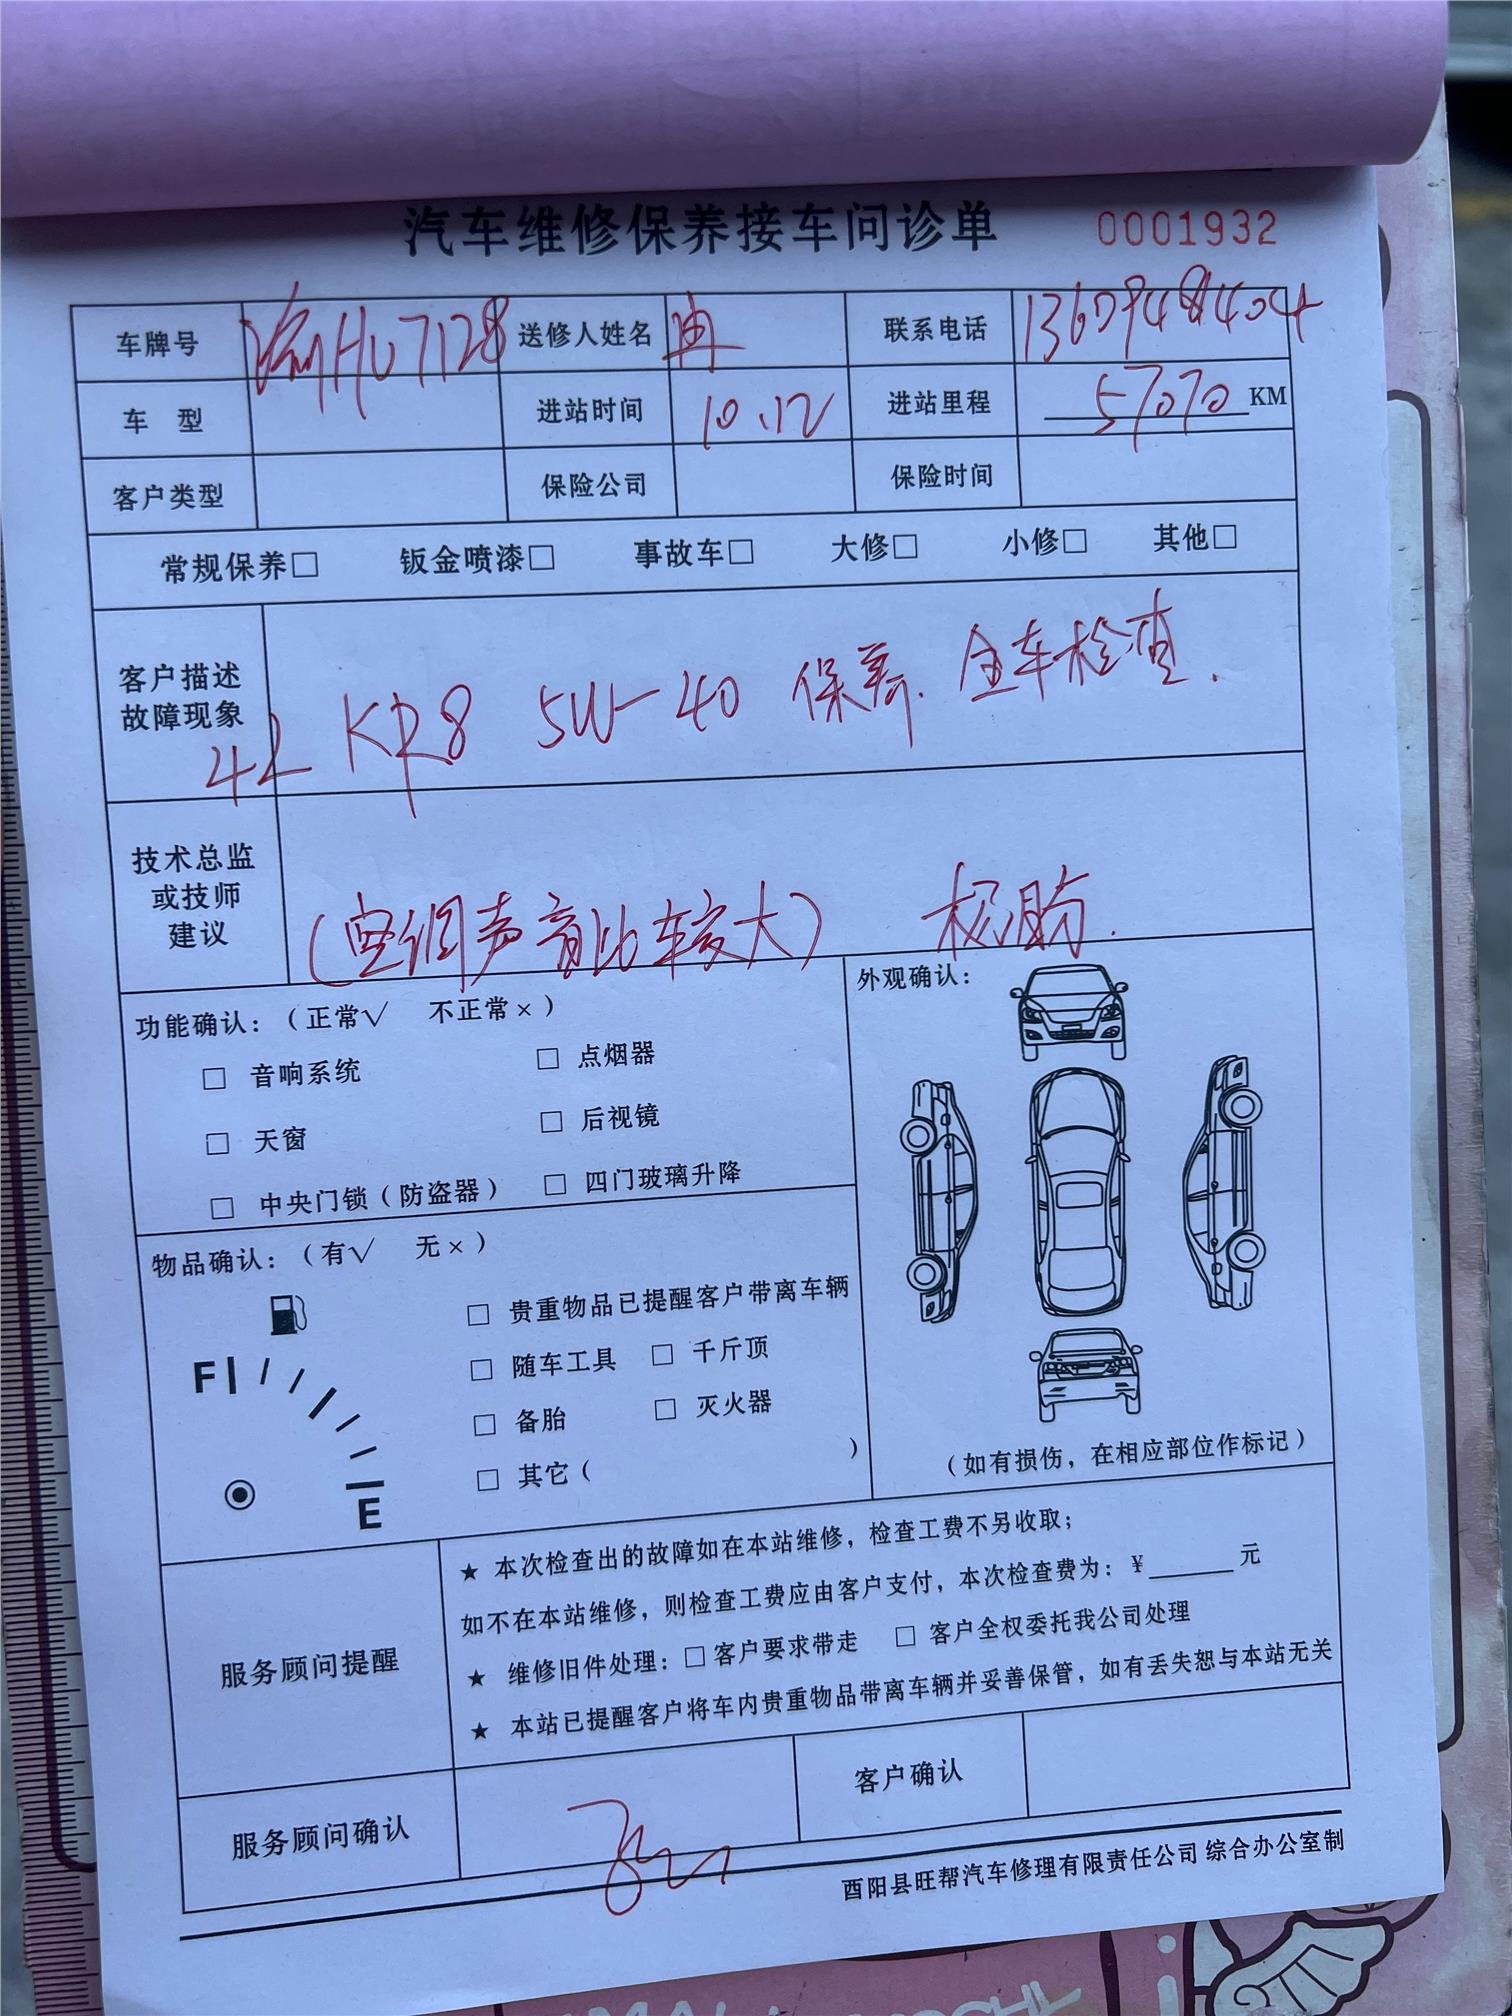 汽车维修保养接车问诊单 0001932
车牌号 渝HU7128 送修人姓名 冉 联系电话
车 型 进站时间 10.12 进站里程 57070 KM
客户类型 保险公司 保险时间
常规保养□ 钣金喷漆□ 事故车□ 大修□ 小修□ 其他□
客户描述
故障现象
4L KR8 5W-40 保养. 全车检查.
技术总监
或技师
建议
(空调声音比较大)
功能确认：（正常√ 不正常×）
□ 音响系统 □ 点烟器
□ 天窗 □ 后视镜
□ 中央门锁（防盗器） □ 四门玻璃升降
外观确认：
（如有损伤，在相应部位作标记）
物品确认：（有√ 无×）
□ 贵重物品已提醒客户带离车辆
□ 随车工具 □ 千斤顶
□ 备胎 □ 灭火器
□ 其它（ ）
F
E
服务顾问提醒
★ 本次检查出的故障如在本站维修，检查工费不另收取；
如不在本站维修，则检查工费应由客户支付，本次检查费为：¥______元
★ 维修旧件处理：□ 客户要求带走 □ 客户全权委托我公司处理
★ 本站已提醒客户将车内贵重物品带离车辆并妥善保管，如有丢失恕与本站无关
服务顾问确认 客户确认
酉阳县旺帮汽车修理有限责任公司 综合办公室制